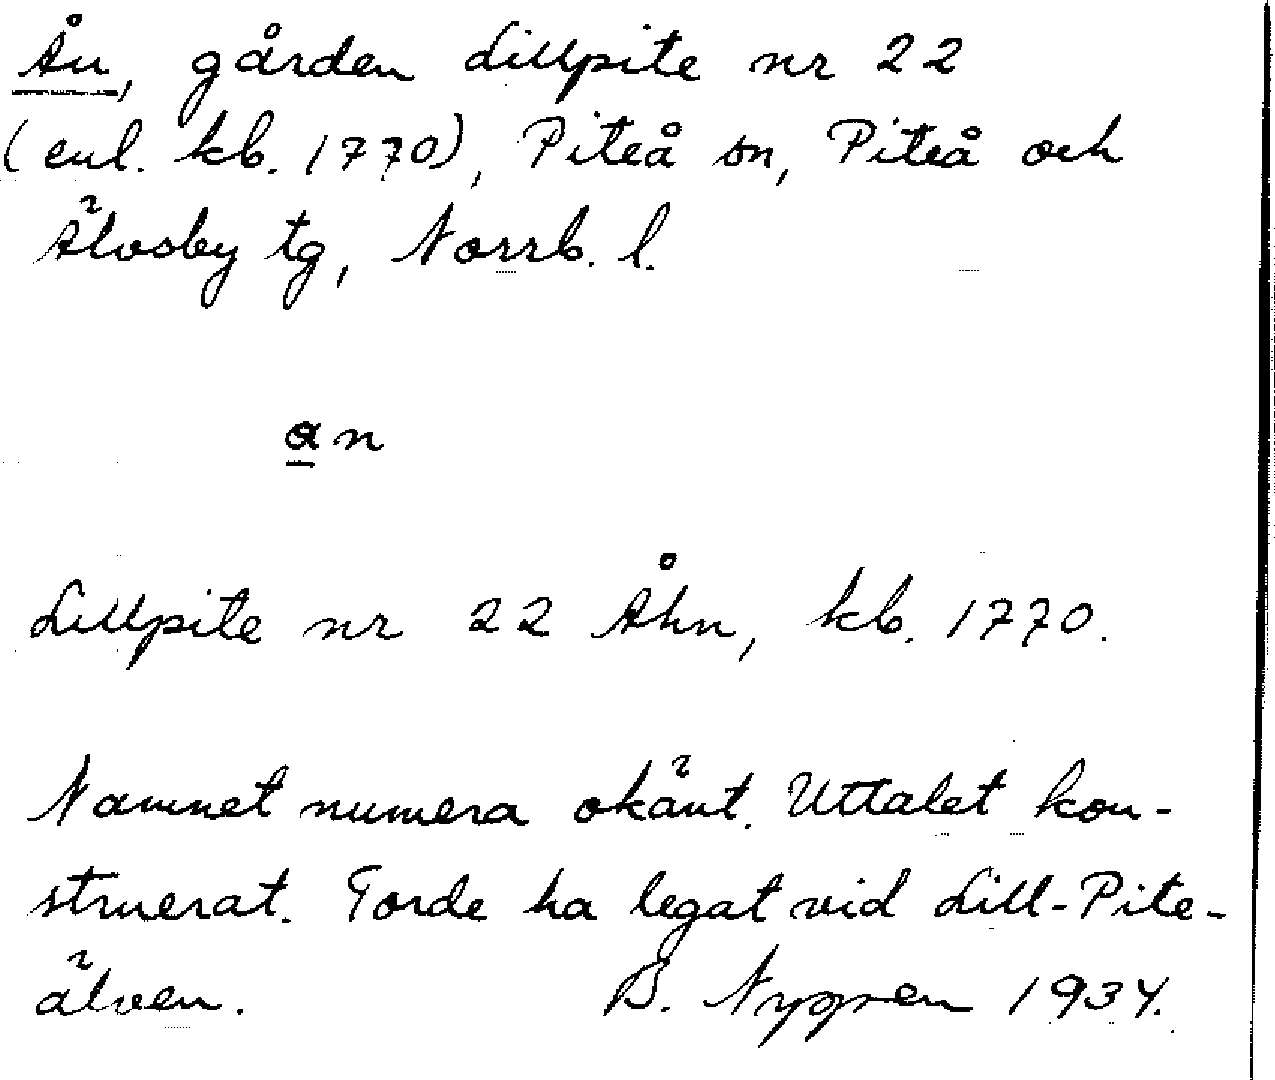 Ån, gården Lillpite nr 22
(enl. kb. 1770), Piteå sn, Piteå och
Älvsby tg, Norrb. l.
an
Lillpite nr 22 Åhn, kb. 1770.
Namnet numera okänt. Uttalet kon-
struerat. Torde ha legat vid Lill-Pite-
älven. B. Nygren 1934.